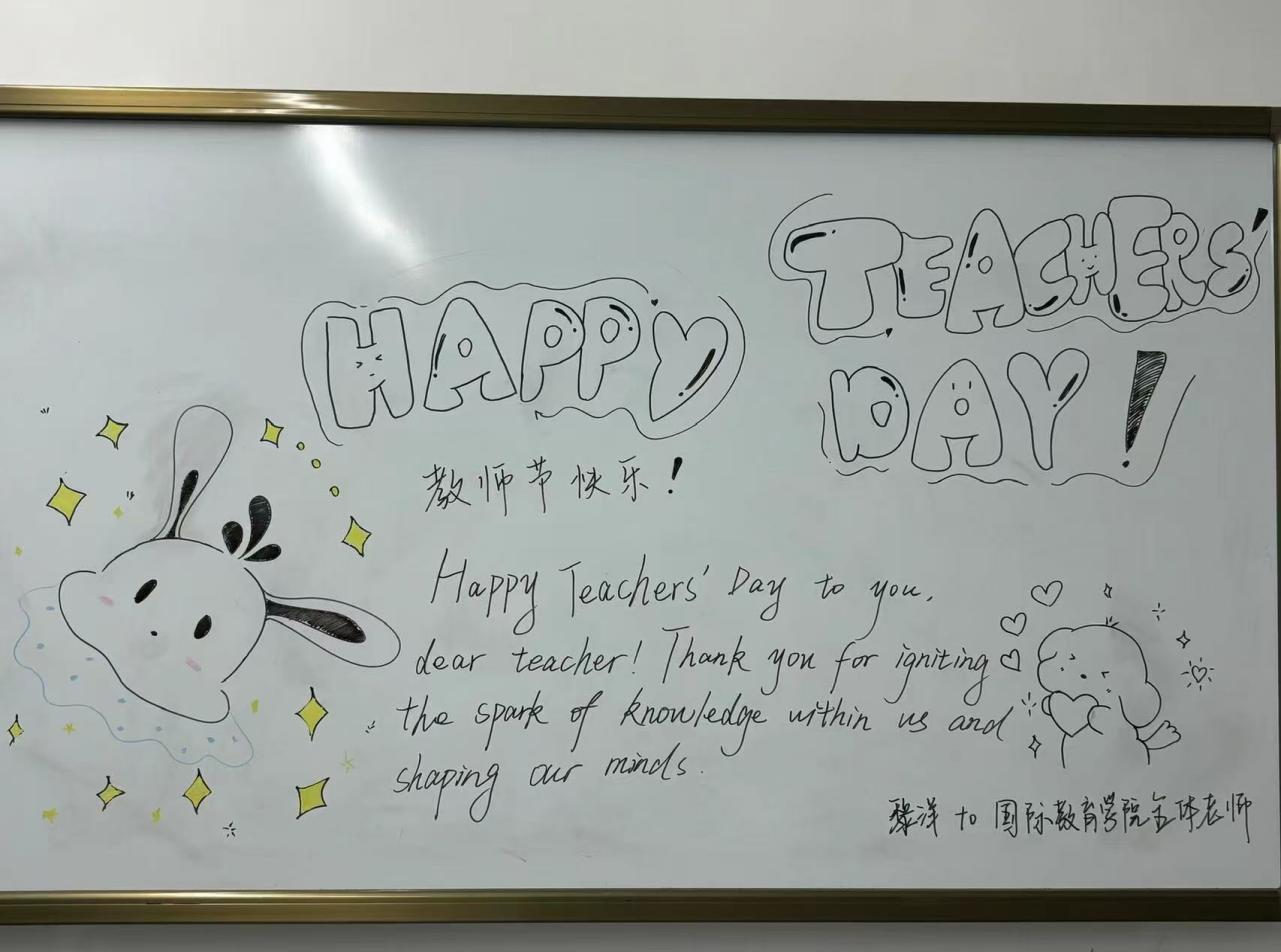 HAPPY
TEACHERS'
DAY!
教师节快乐!
Happy Teachers' Day to you,
dear teacher! Thank you for igniting
the spark of knowledge within us and
shaping our minds.
洋 to 国际教育学院全体老师